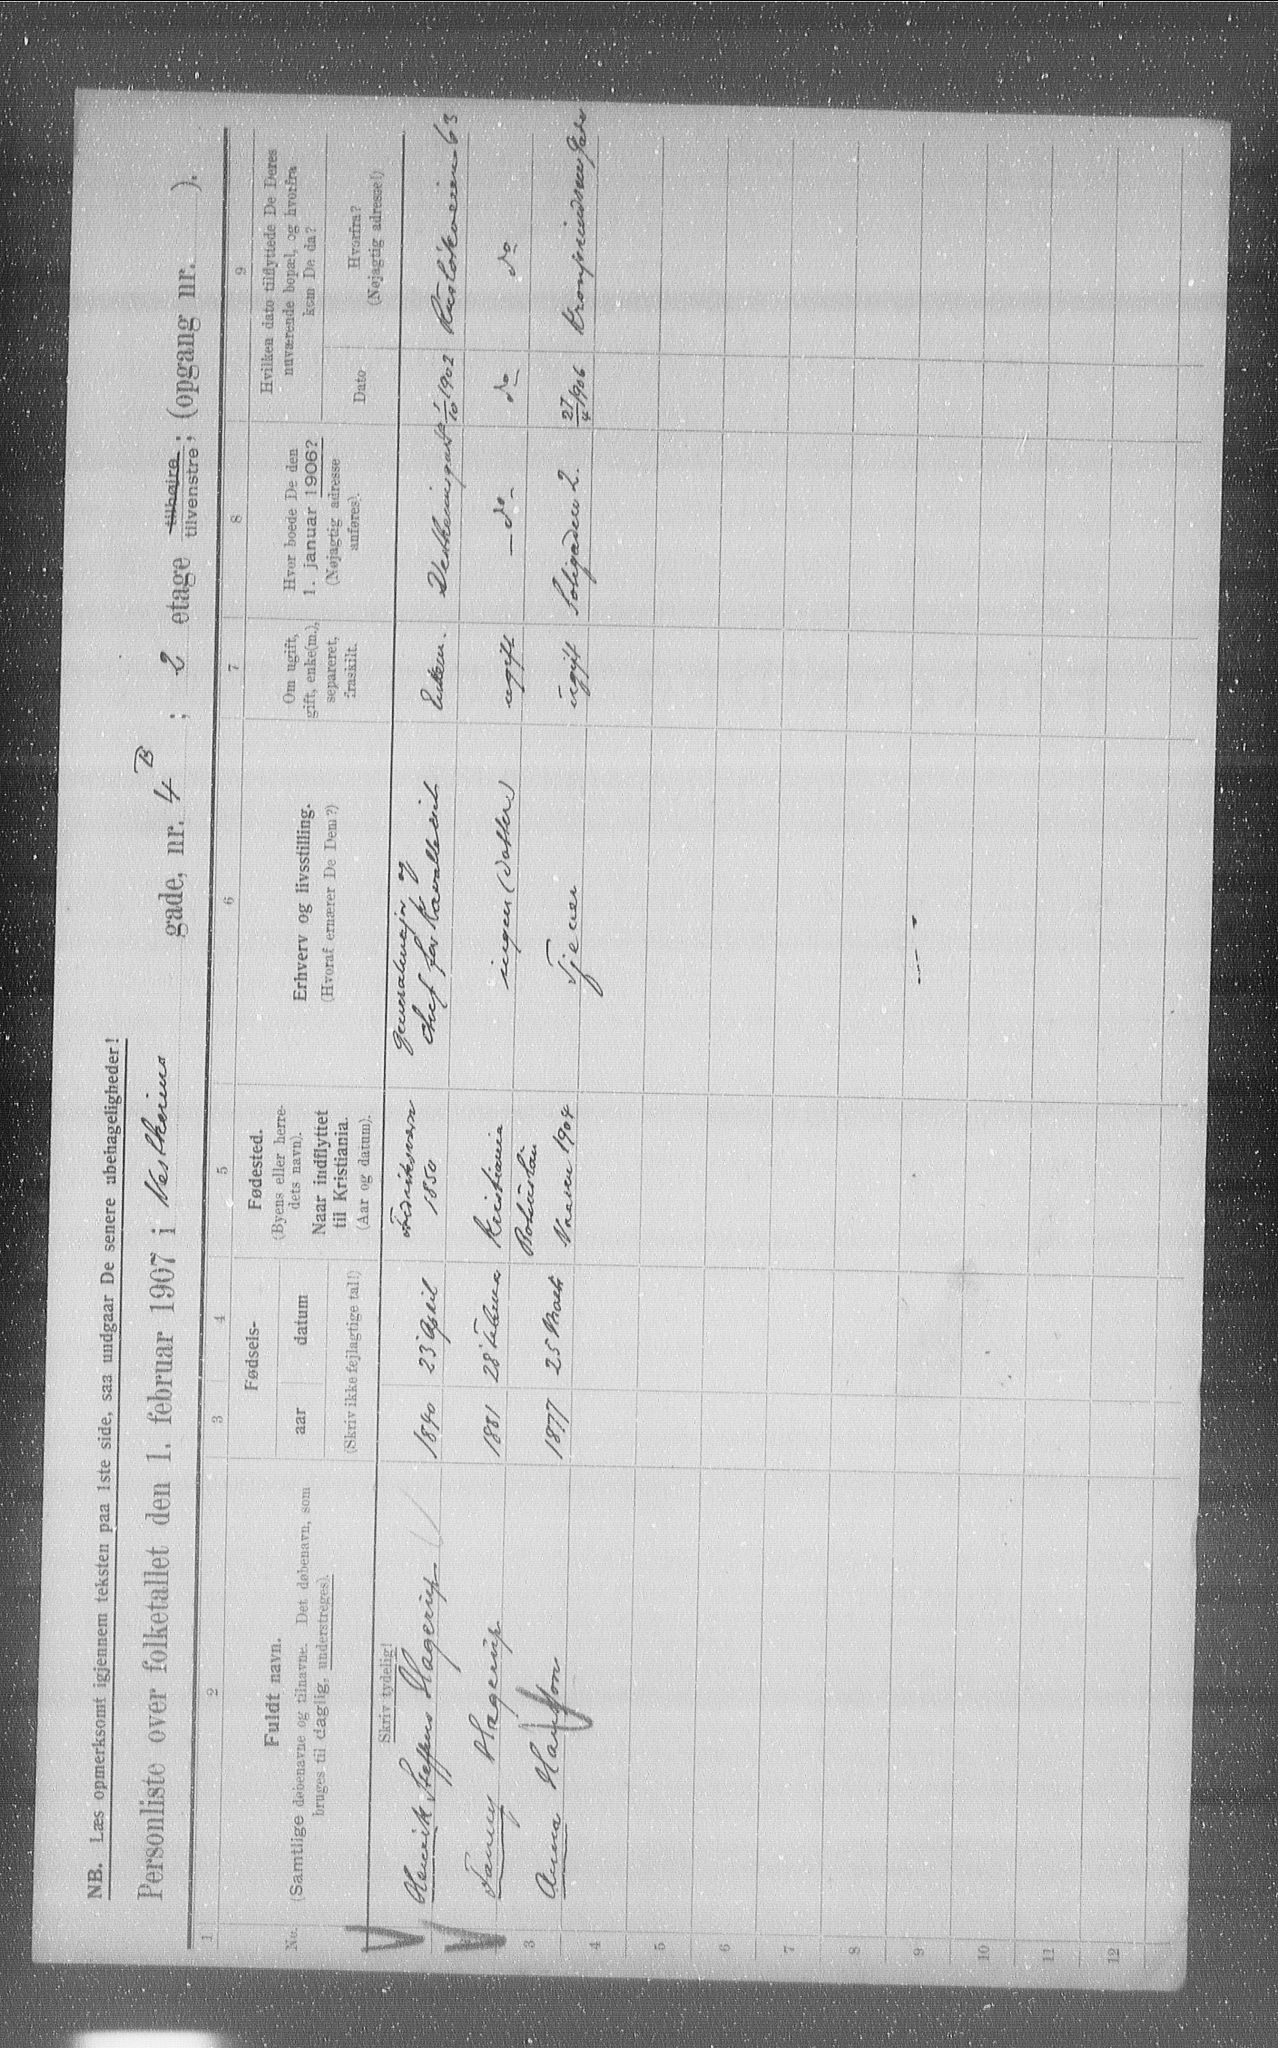 NB. Læs opmerksomt igjennem teksten paa 1ste side, saa undgaar De senere ubehageligheder!
Personliste over folketallet den 1. februar 1907 i Vestheims gade, nr. 4 B ; 2 etage tilhøire tilvenstre; (opgang nr. ).
1 2 3 4 5 6 7 8 9
No.
Fuldt navn.
(Samtlige døbenavne og tilnavne. Det døbenavn, som
bruges til daglig, understreges).
Skriv tydelig!
Fødsels-
aar datum
(Skriv ikke fejlagtige tal!)
Fødested.
(Byens eller herre-
dets navn).
Naar indflyttet
til Kristiania.
(Aar og datum).
Erhverv og livsstilling.
(Hvoraf ernærer De Dem?)
Om ugift,
gift, enke(m.),
separeret,
fraskilt.
Hvor boede De den
1. januar 1906?
(Nøjagtig adresse
anføres).
Hvilken dato tilflyttede De Deres
nuværende bopæl, og hvorfra
kom De da?
Dato
Hvorfra?
(Nøjagtig adresse!)
Henrik Steffens Hagerup 1840 23 April Fredriksværn 1850 Generalmajor og Chef for Kavalleriet Enkem. Vestheimsgade 1/10 1902 Ruseløkveien 63
Fanny Hagerup 1881 28 Februar Kristiania ingen (datter) ugift - do - do do
3 Anna Hansson 1877 25 Bohuslän 1904 Tjener ugift Soligaden 2. 27/4 1906 Kronprindsens Gade
4
5
6
7
8
9
10
11
12